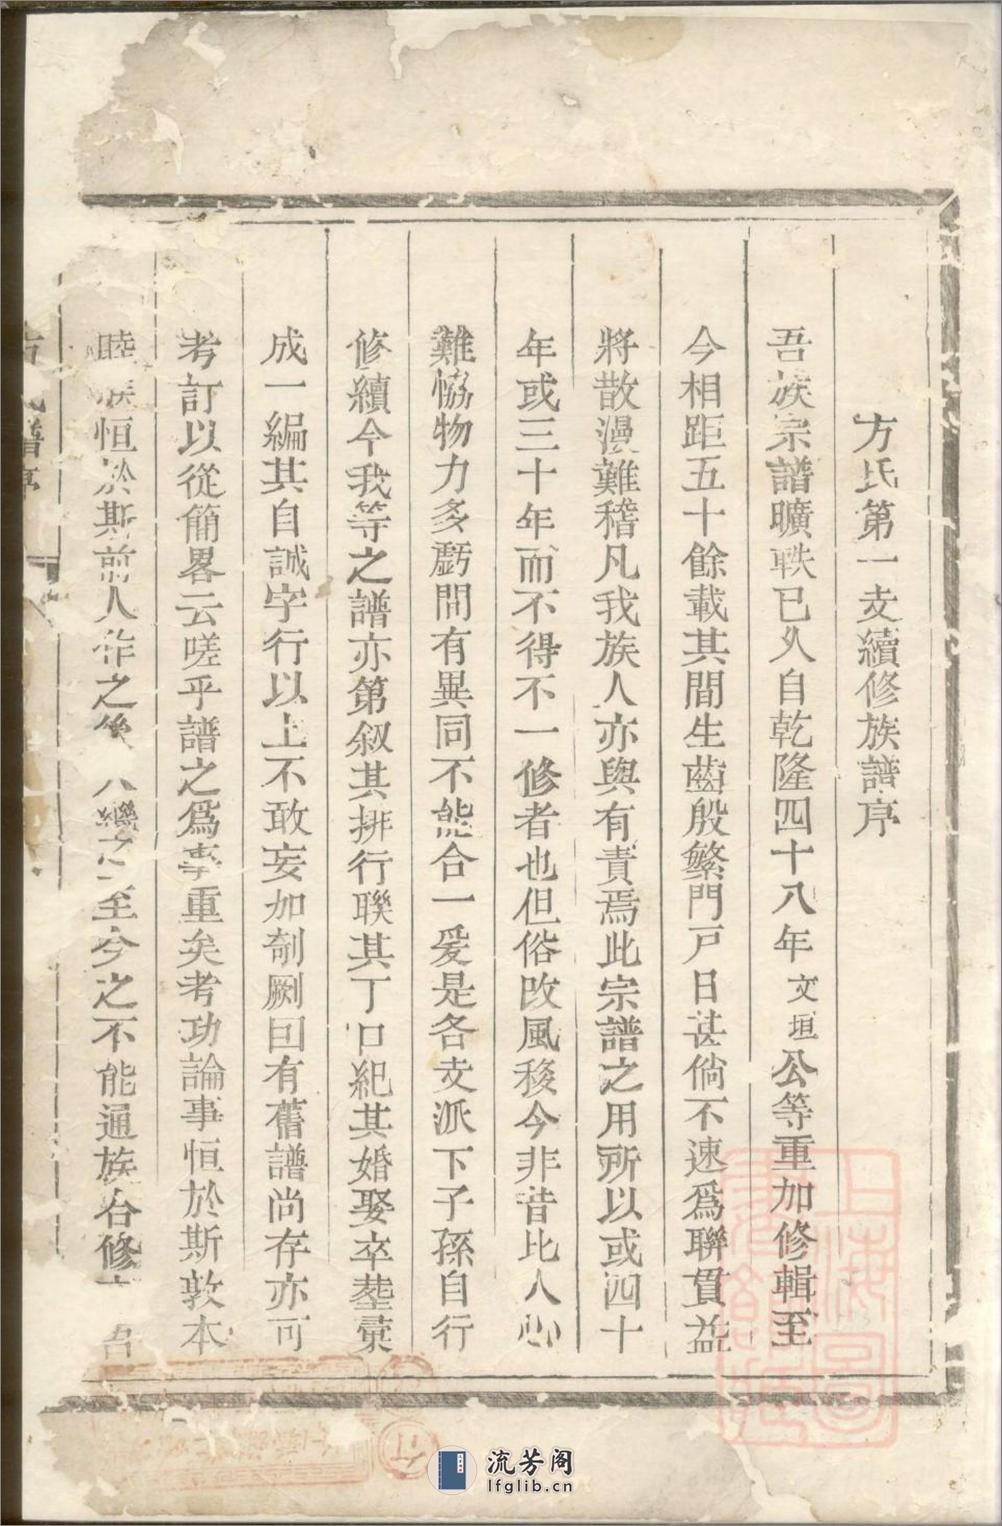 方氏第一支續修族譜序
吾族宗譜曠軼已久自乾隆四十八年文垣公等重加修輯至
今相距五十餘載其間生齒殷繁門戸日甚倘不速爲聯貫益
將散漫難稽凡我族人亦與有責焉此宗譜之用所以或四十
年或三十年而不得不一修者也但俗改風移今非昔比人心
難恊物力多虧間有異同不能合一爰是各支派下子孫自行
修續今我等之譜亦第叙其排行聯其丁口紀其婚娶卒塟彚
成一編其自誠字行以上不敢妄加剞劂囙有舊譜尚存亦可
考訂以從簡畧云嗟乎譜之爲事重矣考功論事恒於斯敦本
睦族恒於斯前人作之後人繼之至今之不能通族合修
方氏譜序
上海圖書館藏
流芳阁
lfglib.cn